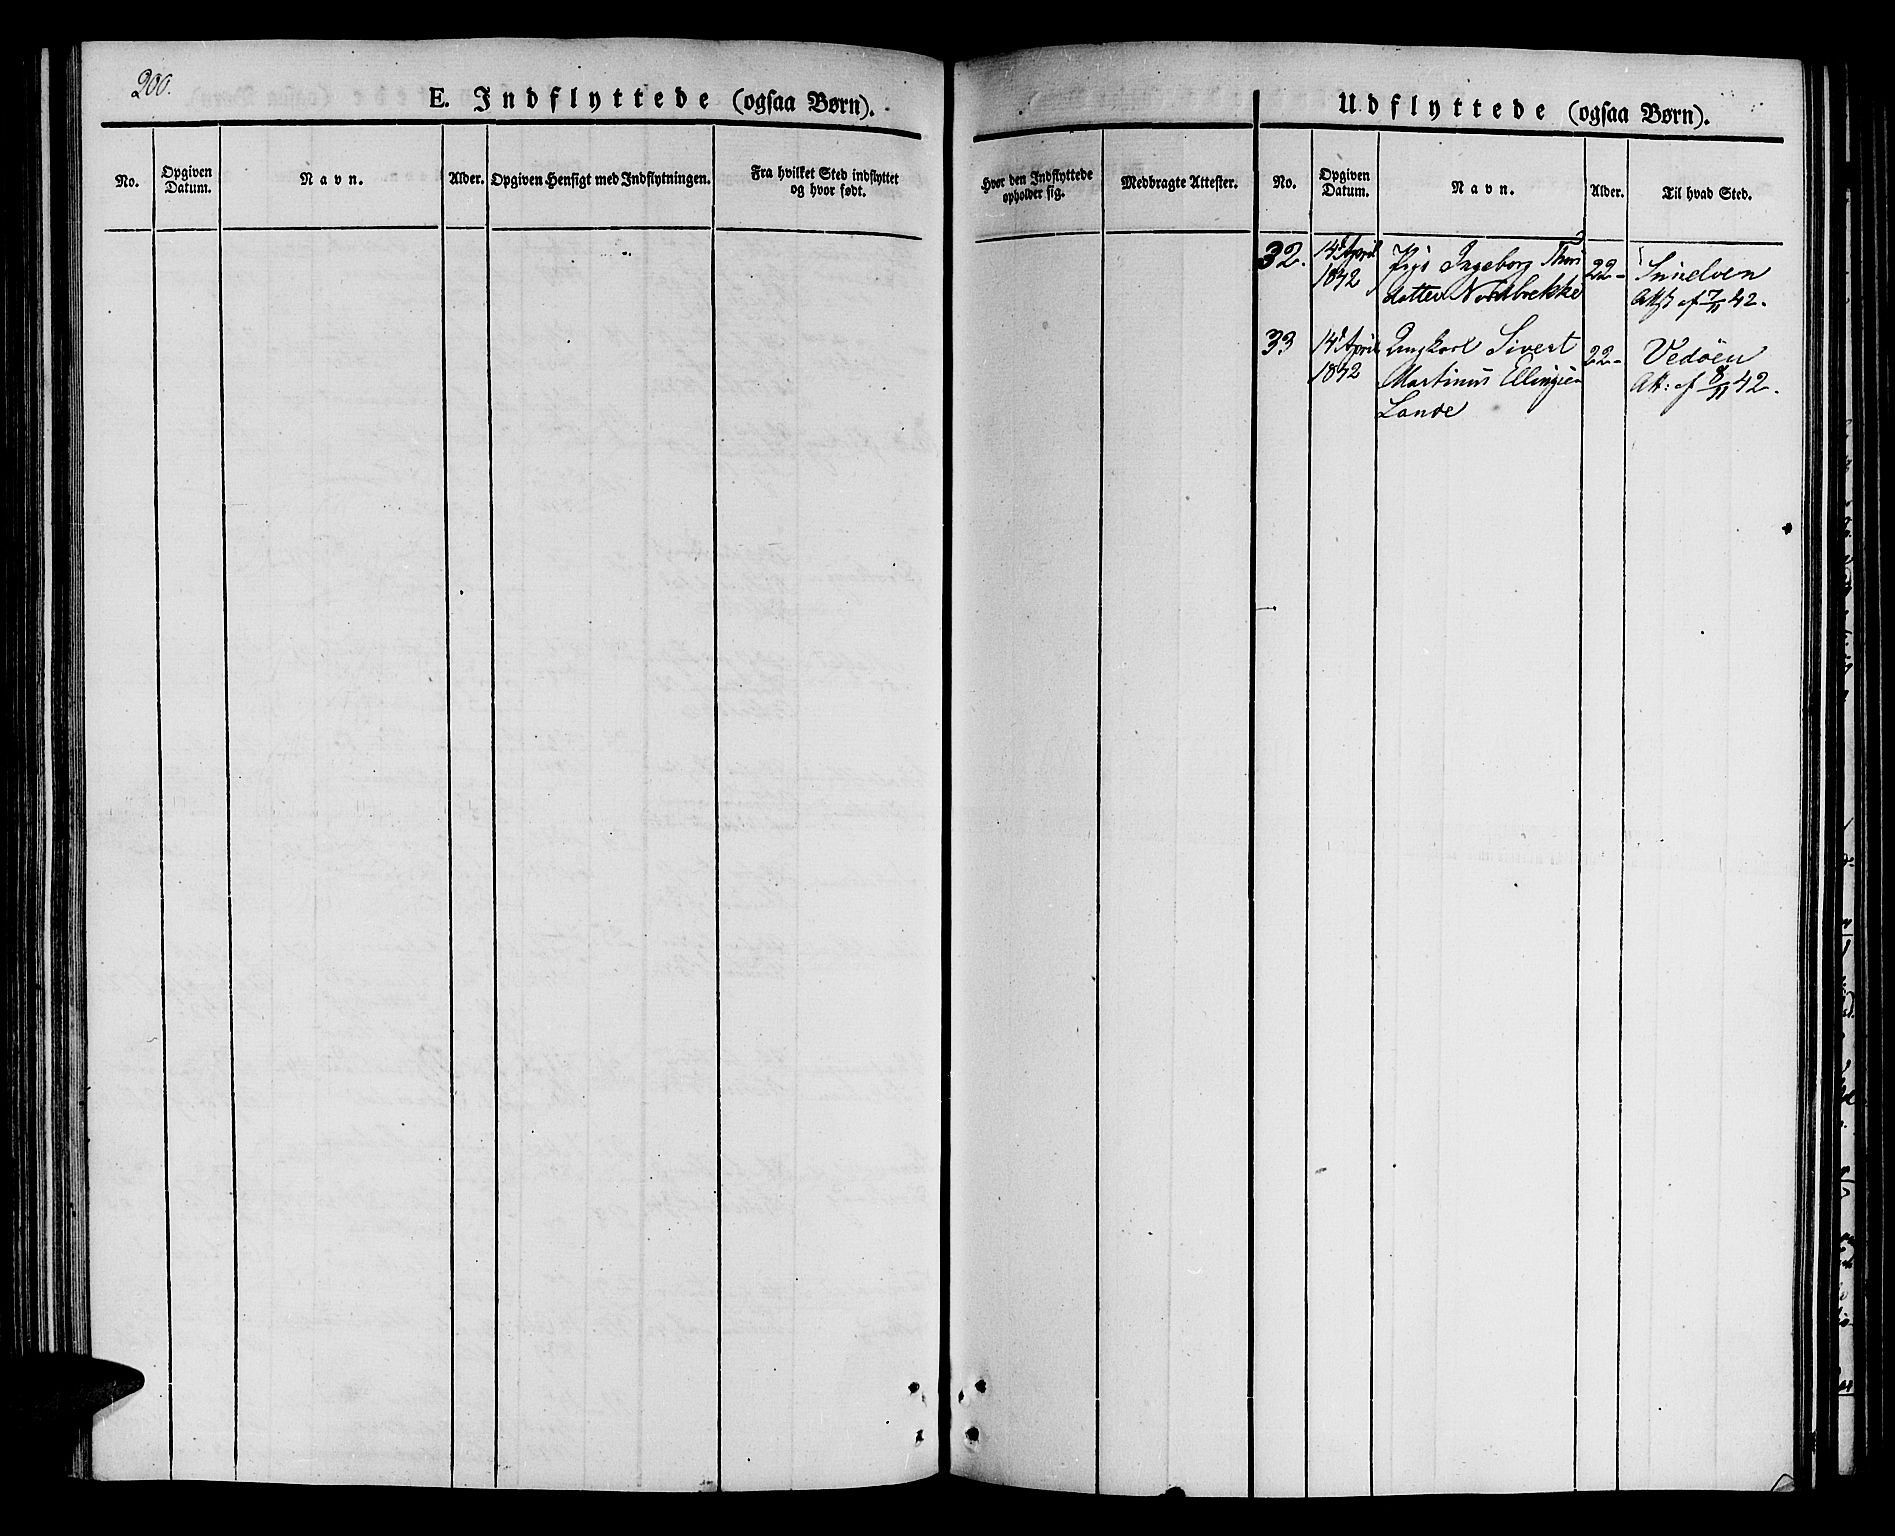 200.
E. Indflyttede (ogsaa Børn).
No.
Opgiven Datum.
Navn.
Alder.
Opgiven Hensigt med Indflytningen.
Fra hvilket Sted indflyttet og hvor født.
Udflyttede (ogsaa Børn).
Hvor den Indflyttede opholder sig.
Medbragte Attester.
No.
Opgiven Datum.
Navn.
Alder.
Til hvad Sted.
32. 14d April Ingeborg 22-
1842 datter
Att: af 7/11 42.
33 14d April Ungkarl Sivert 22- Vedöen
1842 Martinus Att: af 8/11 42.
Lande